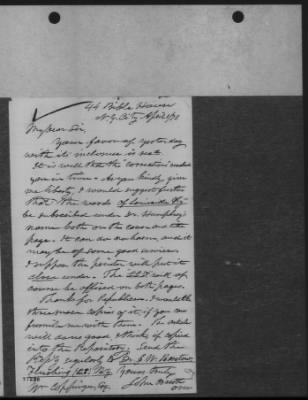 44 Bible House
N.Y. City April 1/70
My dear Sir,
Your favor of yesterday
with its inclosure is rec.
It is well that the "correction" reached
you in time. As you kindly give
me liberty, I would suggest further
that the words of Louisville Ky
be inscribed under Dr. Humphrey's
name both on the cover and the
page. It can do no harm, and it
may be of some good service.
I suppose the printer will put it
close under. The LLD will of
course be affixed on both pages.
Thanks for Republican. I would like
three more copies of it, if you can
furnish me with them. The article
will do us good I think, if copied
into the Repository. Send the
Repy regularly to
Flushing
Yours truly
Wm Coppinger, Esq.
John Orcutt